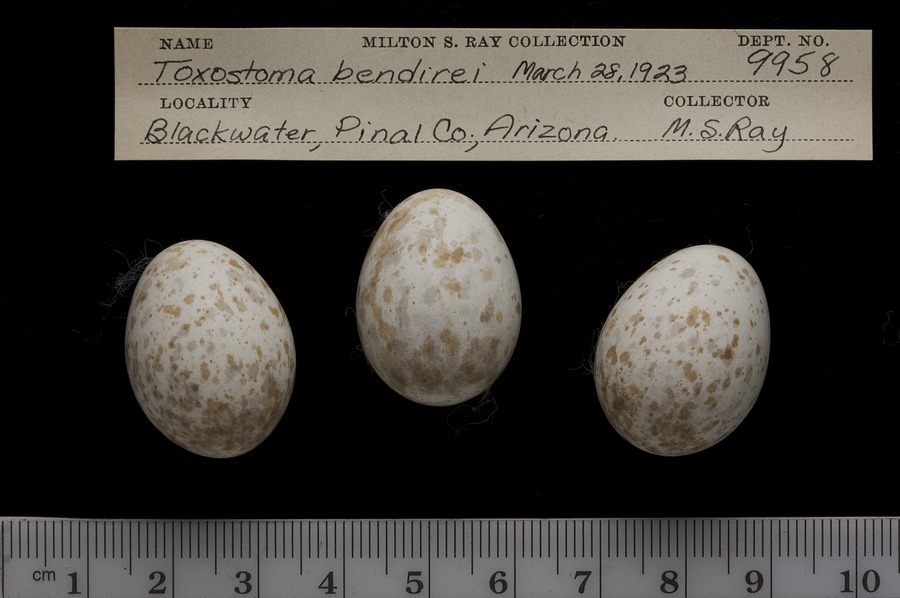 NAME MILTON S. RAY COLLECTION DEPT. NO.
Toxostoma bendirei March 28, 1923 9958
LOCALITY COLLECTOR
Blackwater, Pinal Co., Arizona. M. S. Ray
cm 1 2 3 4 5 6 7 8 9 10